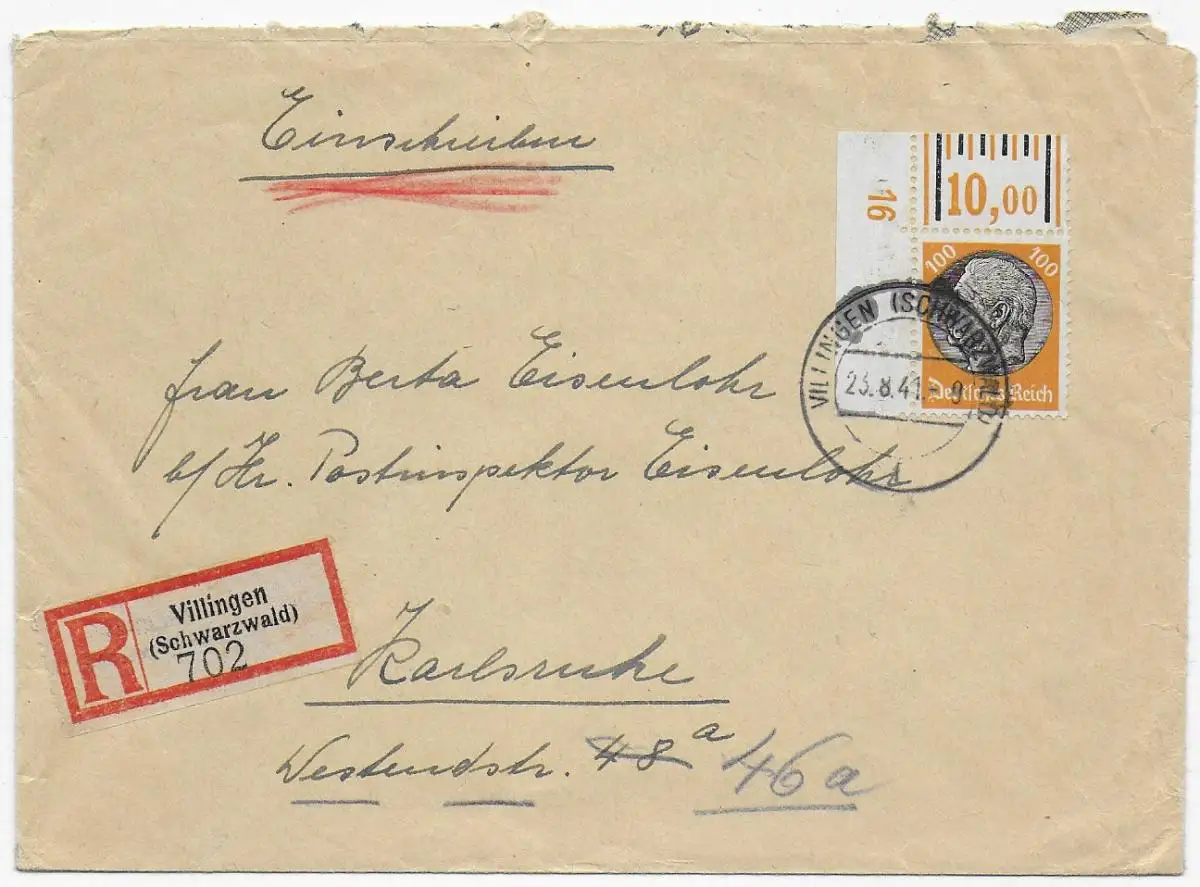 Einschreiben
16
10,00
100 100
Deutsches Reich
VILLINGEN (SCHWARZWALD)
23.8.41.- 9
Frau Berta Eisenlohr
b/Hr. Postinspektor Eisenlohr
R
Villingen
(Schwarzwald)
702
Karlsruhe
Westendstr. 48 a 46a